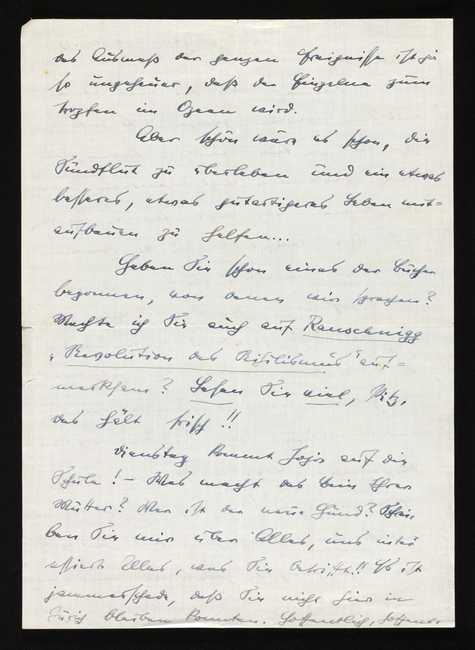 das Ausmaß der ganzen Ereignisse ist ja
so ungeheuer, daß der Einzelne zum
Tropfen im Ozean wird.
Aber schön wäre es schon, die
Sündflut zu überleben und ein etwas
besseres, etwas gutartigeres Leben mit-
aufbauen zu helfen...
Haben Sie schon eines der Bücher
begonnen, von denen wir sprachen?
Machte ich Sie auch auf Rauschnigg
"Revolution des Nihilismus" auf-
merksam? Lesen Sie viel,
das hält frisch!!
Dienstag kommt auf die
Schule! - Was macht das Bein Ihrer
Mutter? Wer ist der neue Hund? Schrei
ben Sie mir über Alles, uns inter
essiert Alles, was Sie betrifft!! Es ist
jammerschade, daß Sie nicht hier in
Zürich bleiben konnten. Hoffentlich, hoffent-